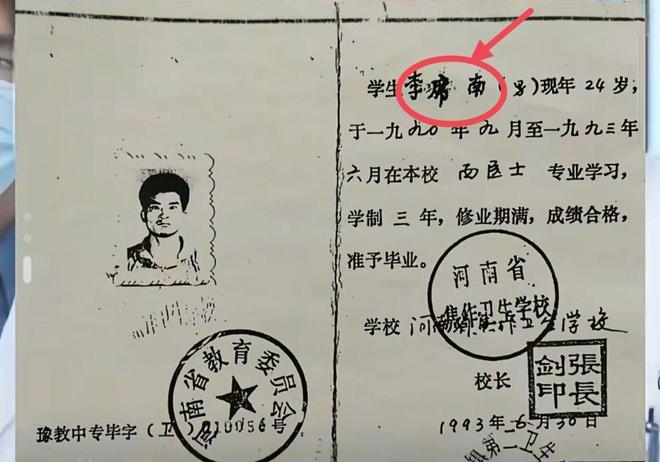 学生李 南（男）现年24岁，
于一九九〇年九月至一九九三年
六月在本校 西医士 专业学习，
学制 三 年，修业期满，成绩合格，
准予毕业。
河南省
焦作卫生学校
学校 河南省焦作卫生学校
校长
張長
劍印
河南省教育委员会
豫教中专毕字（卫）210056号
1993年6月30日
第二卫生